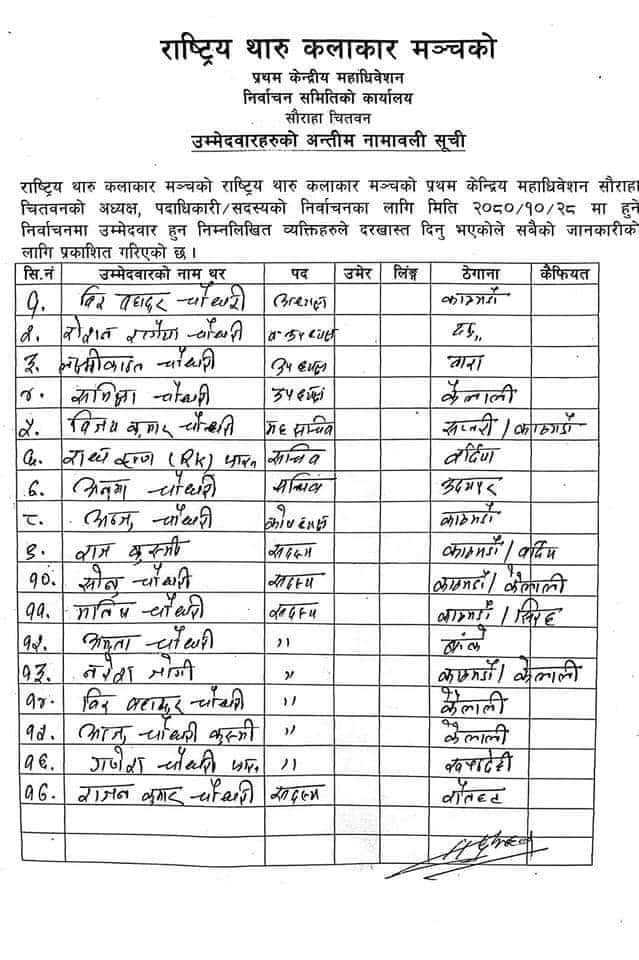 राष्ट्रिय थारु कलाकार मञ्चको
प्रथम केन्द्रीय महाधिवेशन
निर्वाचन समितिको कार्यालय
सौराहा चितवन
उम्मेदवारहरुको अन्तीम नामावली सूची
राष्ट्रिय थारु कलाकार मञ्चको राष्ट्रिय थारु कलाकार मञ्चको प्रथम केन्द्रिय महाधिवेशन सौराहा
चितवनको अध्यक्ष, पदाधिकारी/सदस्यको निर्वाचनका लागि मिति २०८०/१०/२८ मा हुने
निर्वाचनमा उम्मेदवार हुन निम्नलिखित व्यक्तिहरुले दरखास्त दिनु भएकोले सवैको जानकारीको
लागि प्रकाशित गरिएको छ ।
सि.नं उम्मेदवारको नाम थर पद उमेर लिङ्ग ठेगाना कैफियत
१. विर वहादुर चौधरी अध्यक्ष काठमाडौं
२. चौधरी
३. लक्ष्मीकान्त चौधरी उपाध्यक्ष बारा
४. समिक्षा चौधरी उपाध्यक्ष कैलाली
५. विजय कुमार चौधरी महासचिव सप्तरी / काठमाडौं
६. (RK) सचिव बर्दिया
७. चौधरी सचिव उदयपुर
८. अन्जु चौधरी कोषाध्यक्ष काठमाडौं
९. राज कुस्मी सदस्य काठमाडौं / बर्दिया
१०. सोनु चौधरी सदस्य काठमाडौं / कैलाली
११. चौधरी सदस्य काठमाडौं / सिरहा
१२. अमृता चौधरी " बाँके
१३. नरेश जोगी " काठमाडौं / कैलाली
१४. विर वहादुर चौधरी " कैलाली
१५. चौधरी कुस्मी " कैलाली
१६. गणेश चौधरी " रुपन्देही
१७. राजन कुमार चौधरी सदस्य रौतहट